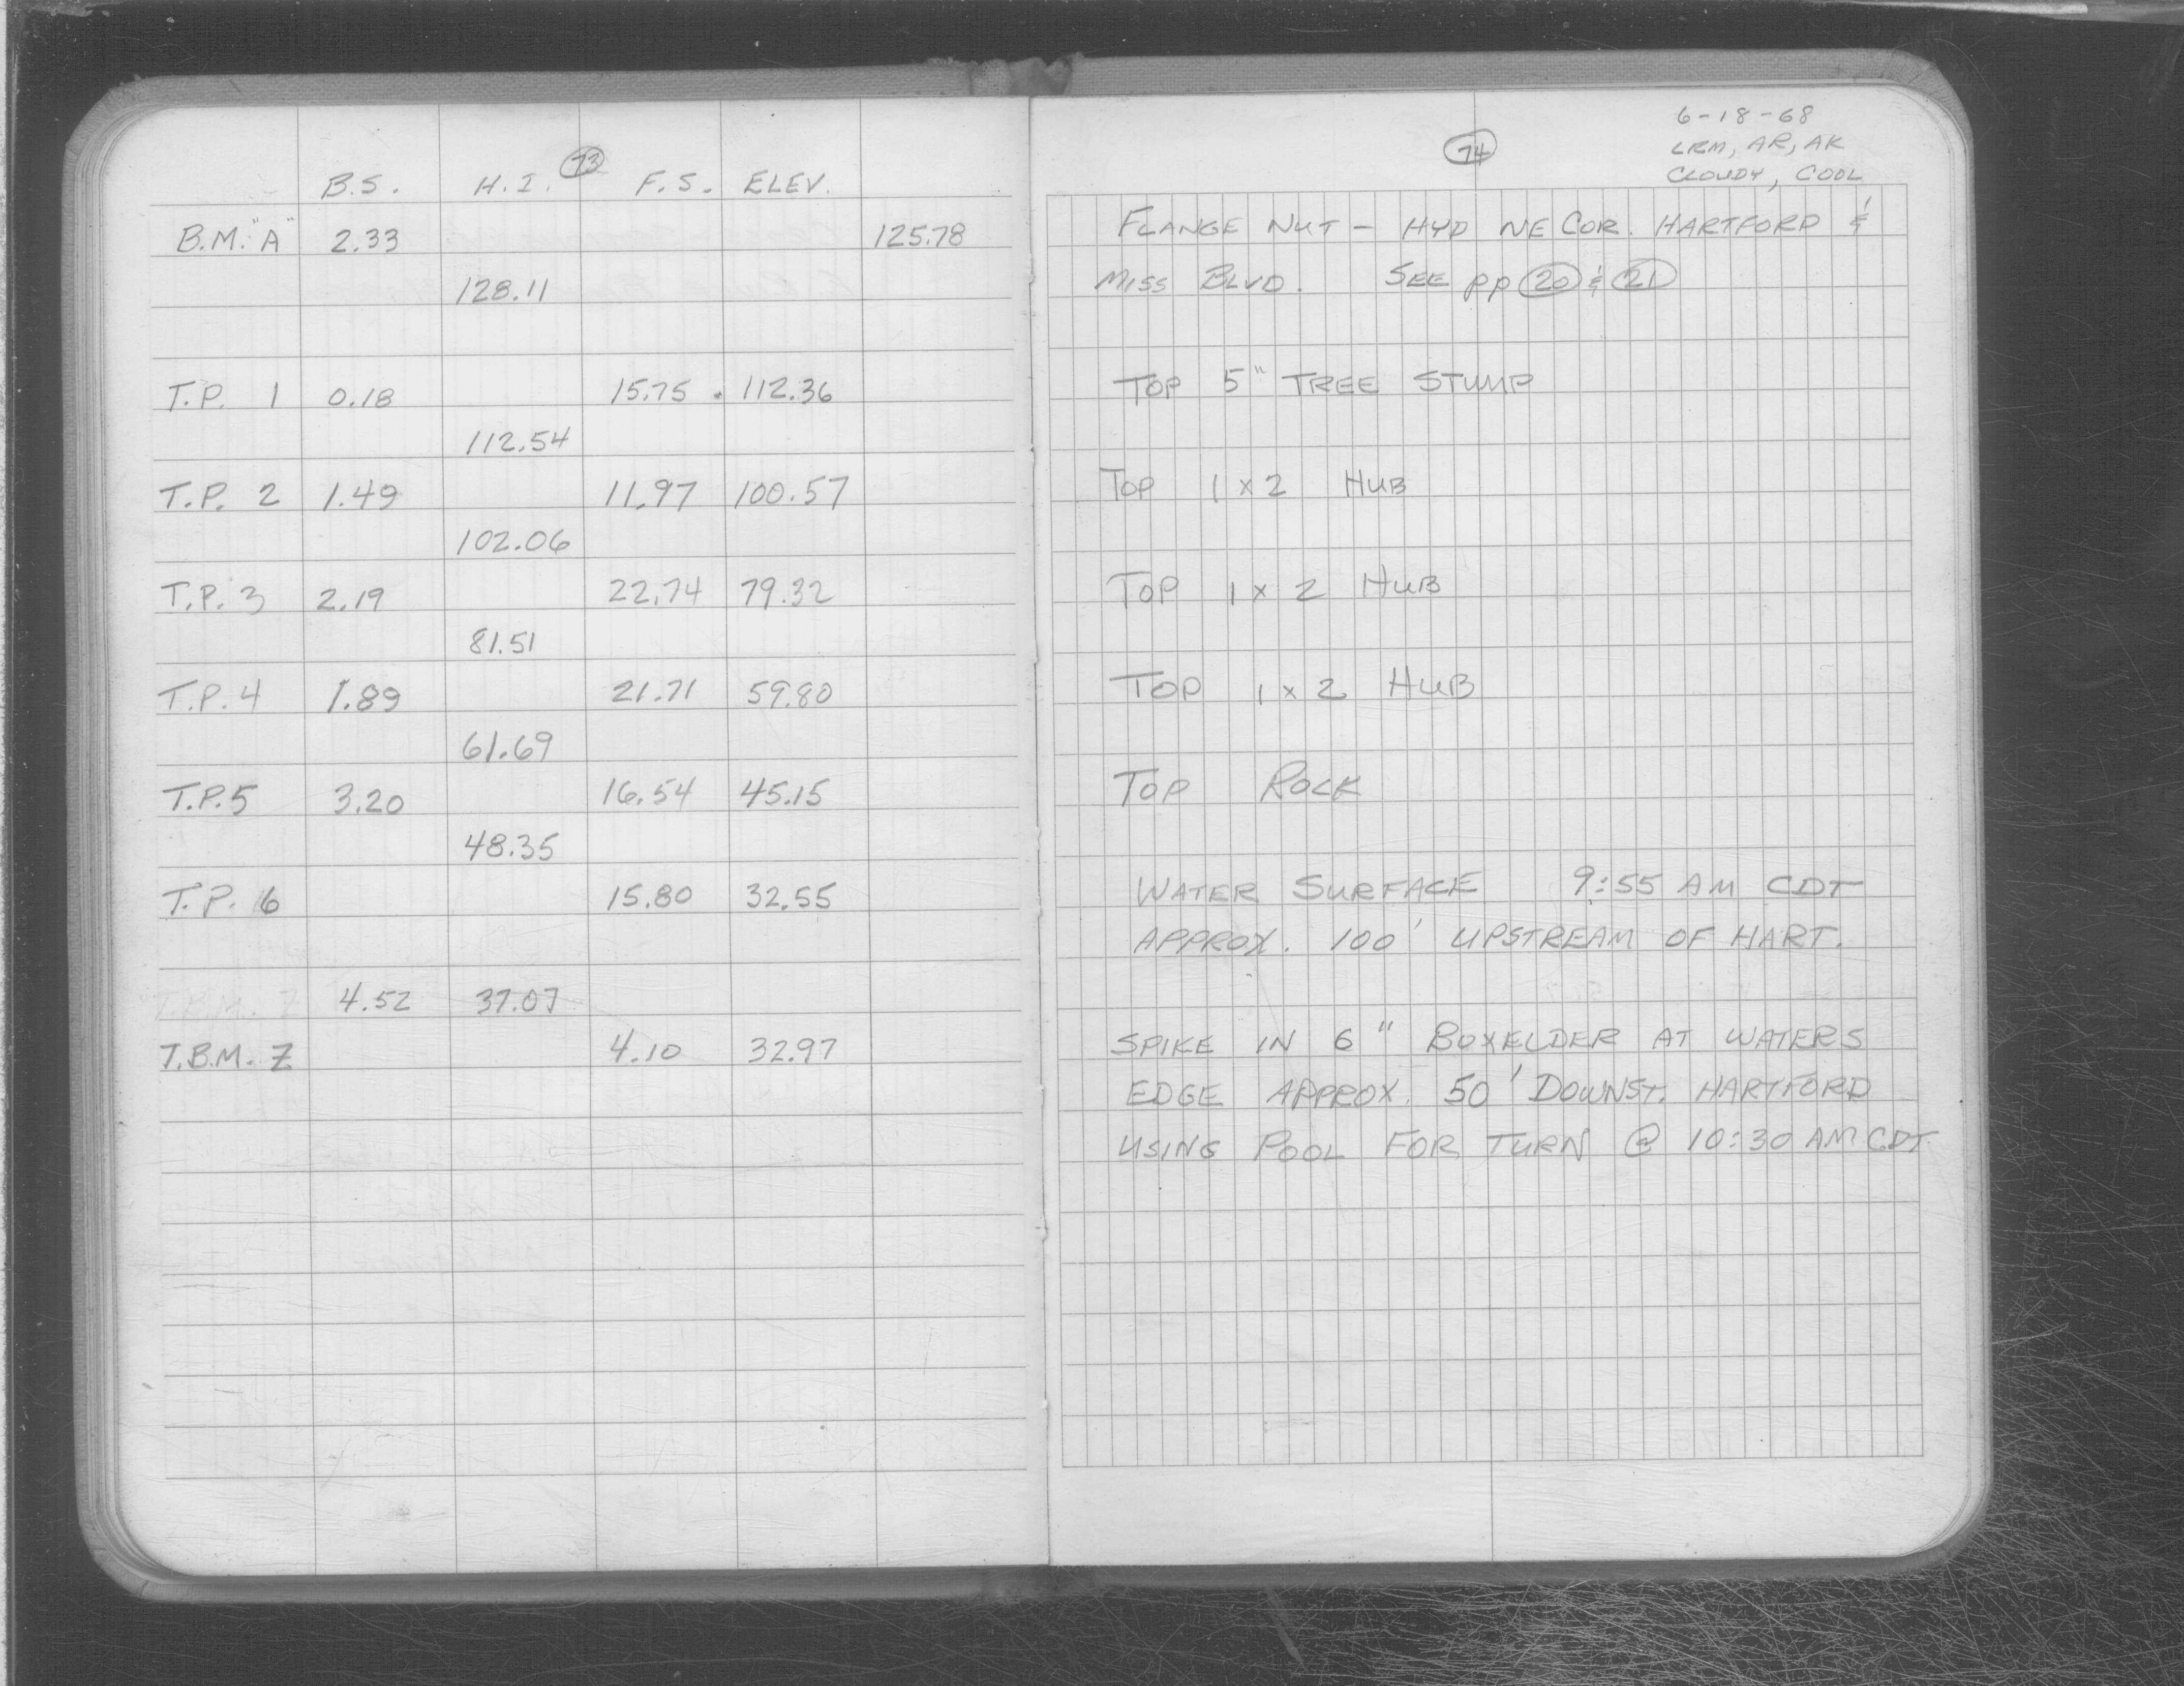 73
B.S. H.I. F.S. ELEV.
B.M. "A" 2.33 125.78
128.11
T.P. 1 0.18 15.75 112.36
112.54
T.P. 2 1.49 11.97 100.57
102.06
T.P. 3 2.19 22.74 79.32
81.51
T.P. 4 1.89 21.71 59.80
61.69
T.P. 5 3.20 16.54 45.15
48.35
T.P. 6 15.80 32.55
T.B.M. Z 4.52 37.07
T.B.M. Z 4.10 32.97
74
6-18-68
LRM, AR, AK
CLOUDY, COOL
FLANGE NUT - HYD NE COR. HARTFORD &
MISS BLVD. SEE pp 20 & 21
TOP 5" TREE STUMP
TOP 1 x 2 HUB
TOP 1 x 2 HUB
TOP 1 x 2 HUB
TOP ROCK
WATER SURFACE 9:55 AM CDT
APPROX. 100' UPSTREAM OF HART.
SPIKE IN 6" BOXELDER AT WATERS
EDGE APPROX. 50' DOWNST. HARTFORD
USING POOL FOR TURN @ 10:30 AM CDT